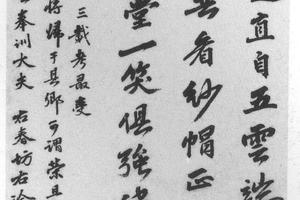 直自五雲端
看紗帽正
堂一笑俱強
三載考最受
將歸于其鄉可謂榮且
奉訓大夫右春坊右